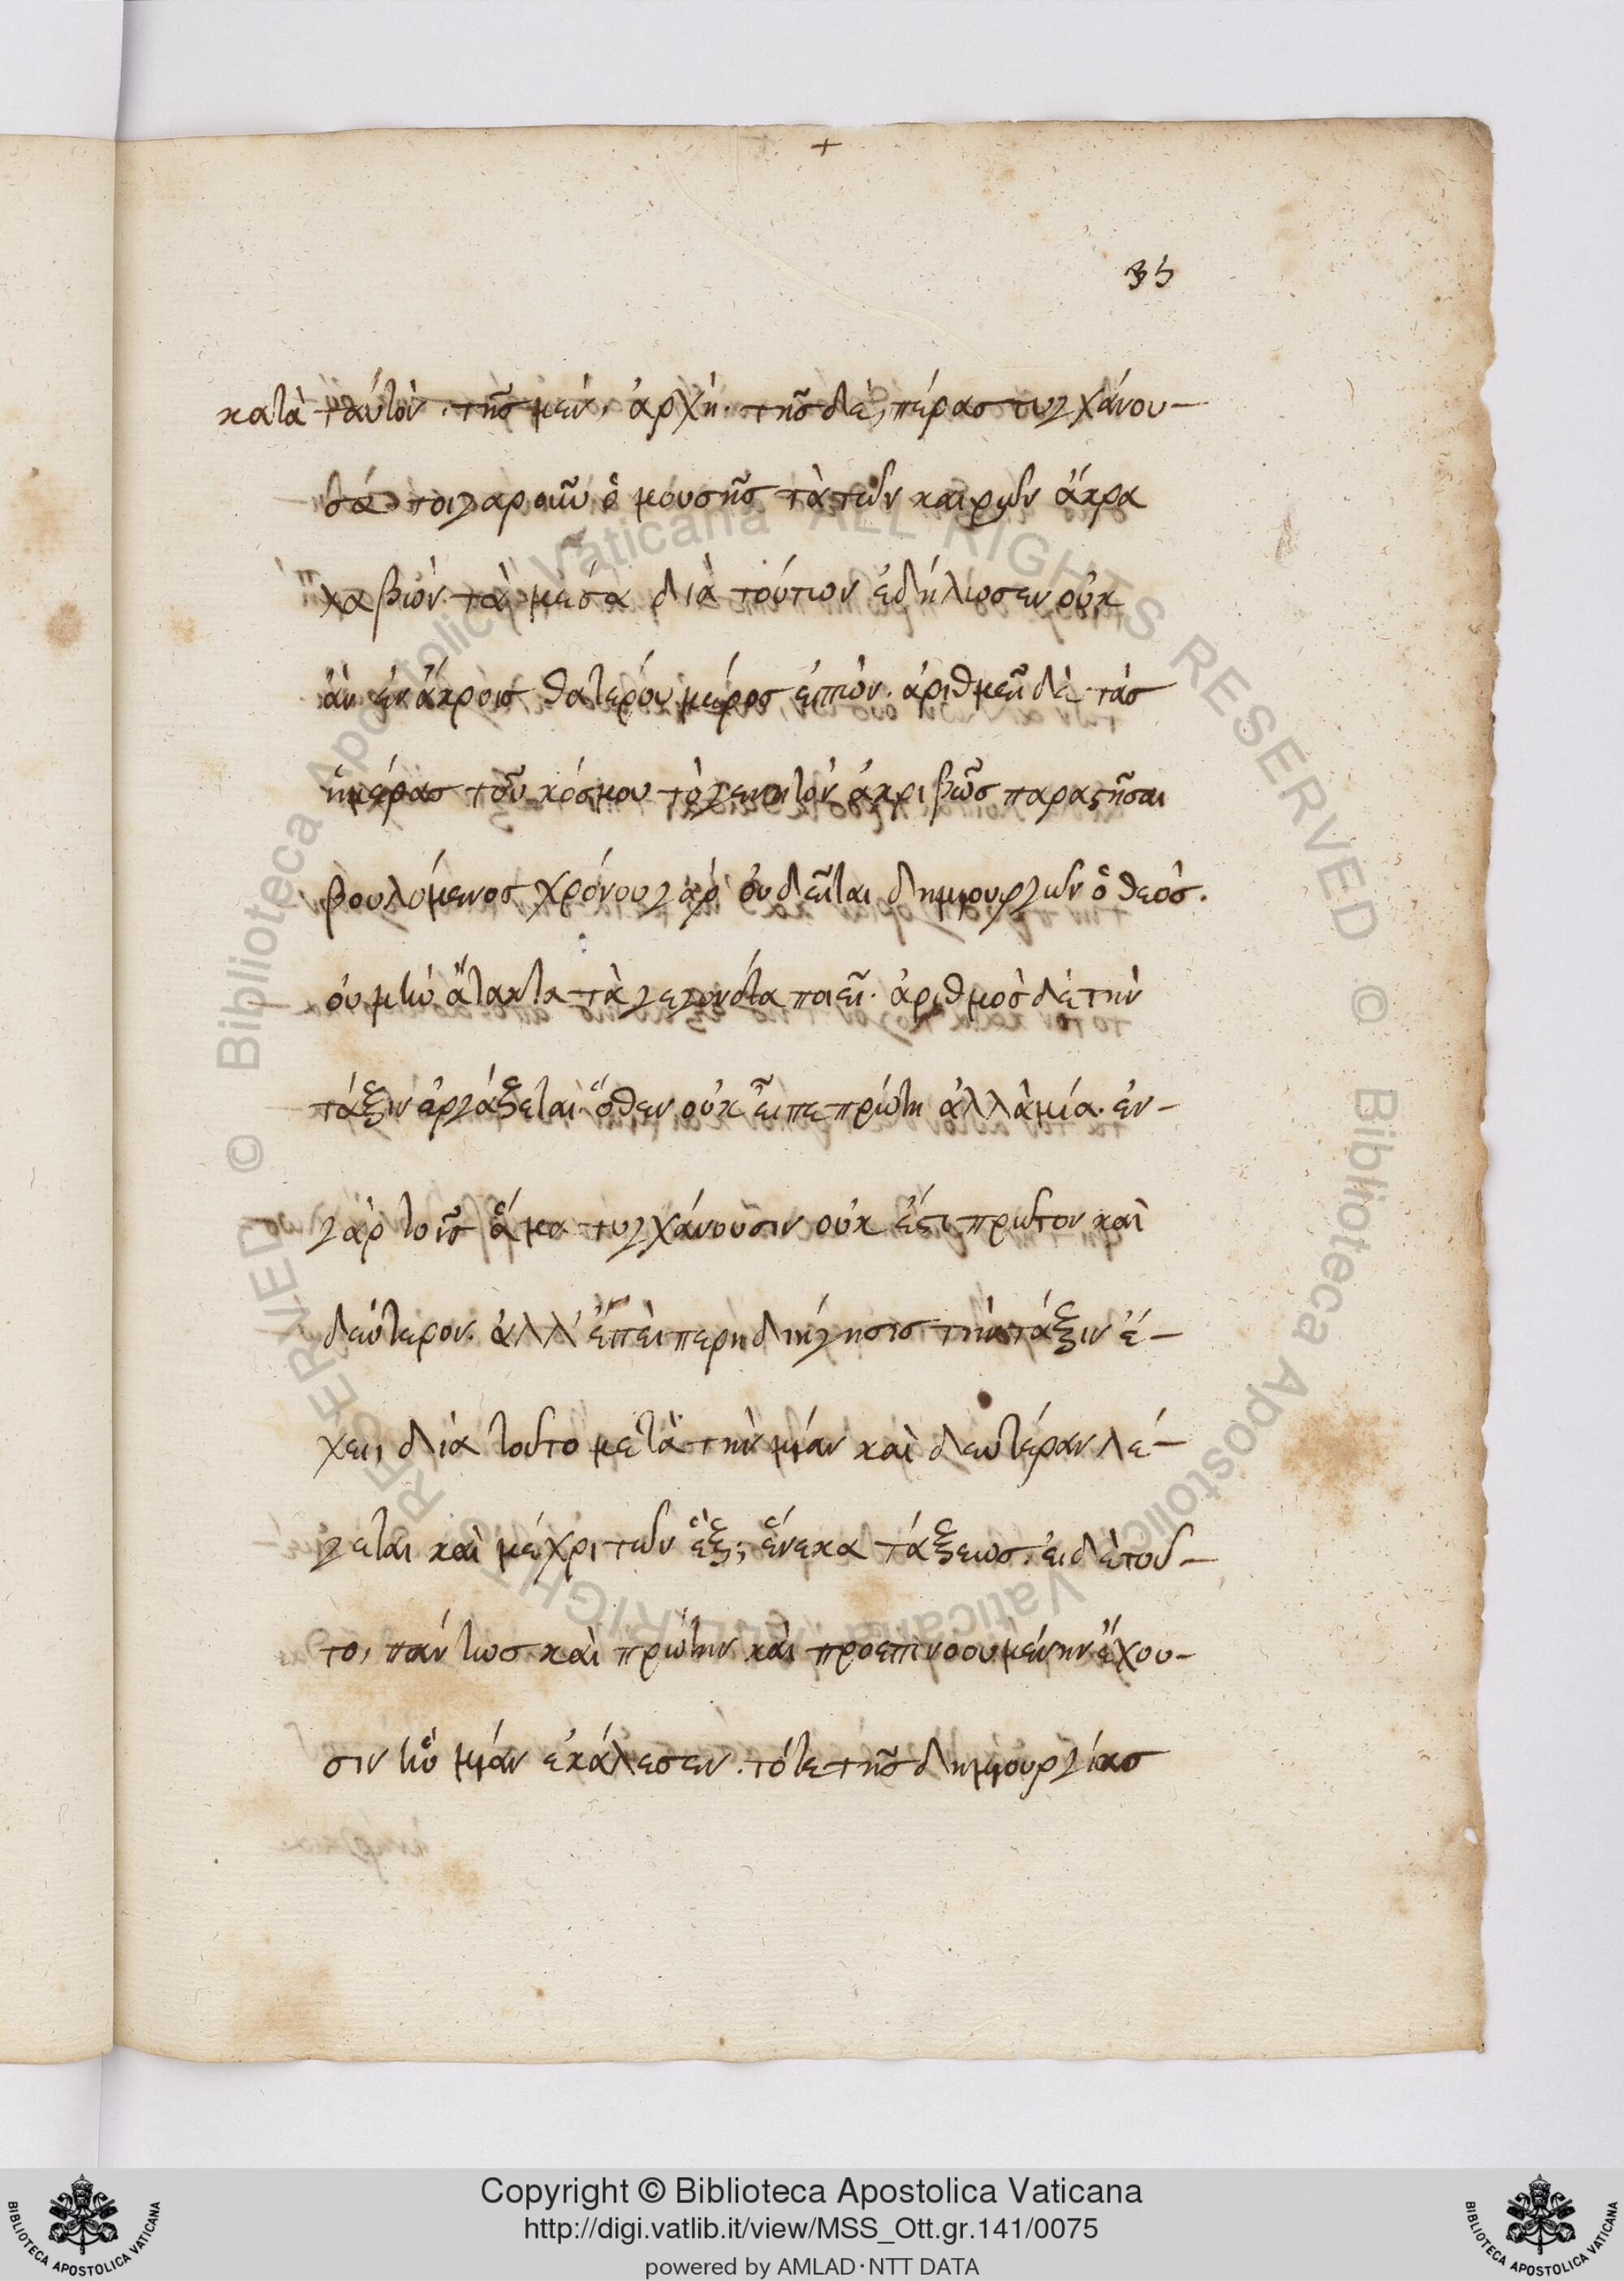 +
35
κατὰ ταὐτὸν. τῆς μὲν, ἀρχὴ. τῆς δὲ, πέρας τυγχάνου-
σα τοιγαροῦν ὁ μουσῆς τὰ τῶν καιρῶν ἄκρα
λαβὼν τὰ μέσα διὰ τούτων ἐδήλωσεν οὐκ
ἂν ἐν ἄκροις θατέρου μέρος εἰπὼν. ἀριθμεῖ δὲ τὰς
ἡμέρας τοῦ κόσμου τὸ γεννητὸν ἀκριβῶς παραστῆσαι
βουλόμενος χρόνου γὰρ οὐ δεῖται δημιουργῶν ὁ θεός.
οὐ μὴν ἄτακτα τὰ γεγονότα ποιεῖ. ἀριθμὸς δὲ τὴν
τάξιν ἐργάζεται. ὅθεν οὐκ εἶπε πρώτη ἀλλὰ μία. ἐν-
γὰρ τοῖς ἅμα τυγχάνουσιν οὐκ ἔστι πρῶτον καὶ
δεύτερον. ἀλλ' ἐπεὶ περ ἡ διήγησις τὴν τάξιν ἔ-
χει, διὰ τοῦτο μετὰ τὴν μίαν καὶ δευτέραν λέ-
γεται καὶ μέχρι τῶν ἓξ, ἕνεκα τάξεως. εἰ δὲ τοῦ-
το, πάντως καὶ πρώτην καὶ προεπινοουμένην ἔχου-
σιν ἣν μίαν ἐκάλεσεν. τότε τῆς δημιουργίας
Copyright © Biblioteca Apostolica Vaticana
http://digi.vatlib.it/view/MSS_Ott.gr.141/0075
powered by AMLAD·NTT DATA
© Biblioteca Apostolica Vaticana ALL RIGHTS RESERVED
© Biblioteca Apostolica Vaticana ALL RIGHTS RESERVED
BIBLIOTECA APOSTOLICA VATICANA
BIBLIOTECA APOSTOLICA VATICANA